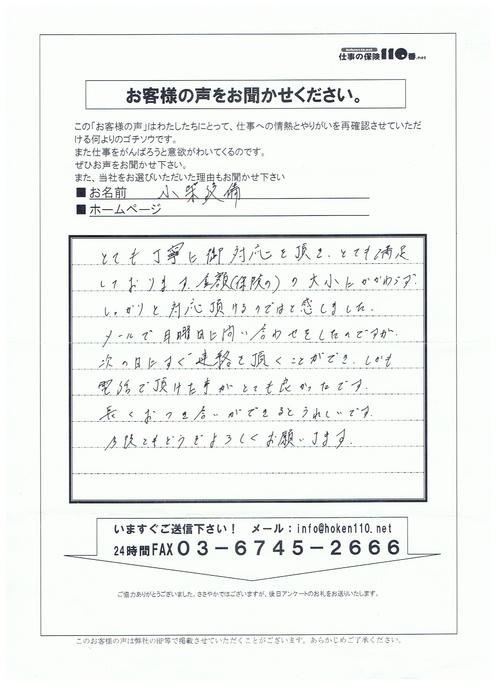 仕事の保険110番.net
お客様の声をお聞かせください。
この「お客様の声」はわたしたちにとって、仕事への情熱とやりがいを再確認させていただ
ける何よりのゴチソウです。
また仕事をがんばろうと意欲がわいてくるのです。
ぜひお声をお聞かせ下さい。
また、当社をお選びいただいた理由もお聞かせ下さい
■お名前 小
■ホームページ
とても丁寧に御対応を頂き、とても満足
しております。金額(保険の)の大小にかかわらず、
しっかりと対応頂けるのではと感じました。
メールで日曜日に問い合わせをしたのですが、
次の日にすぐ連絡を頂くことができ、しかも
電話で頂けた事がとても良かったです。
長くおつき合いができるとうれしいです。
今後ともどうぞよろしくお願いします。
いますぐご送信下さい! メール：info@hoken110.net
24時間FAX 03-6745-2666
ご協力ありがとうございました。ささやかではございますが、後日アンケートのお礼をお送りいたします。
このお客様の声は弊社のHP等で掲載させていただくことがございます。あらかじめご了承ください。